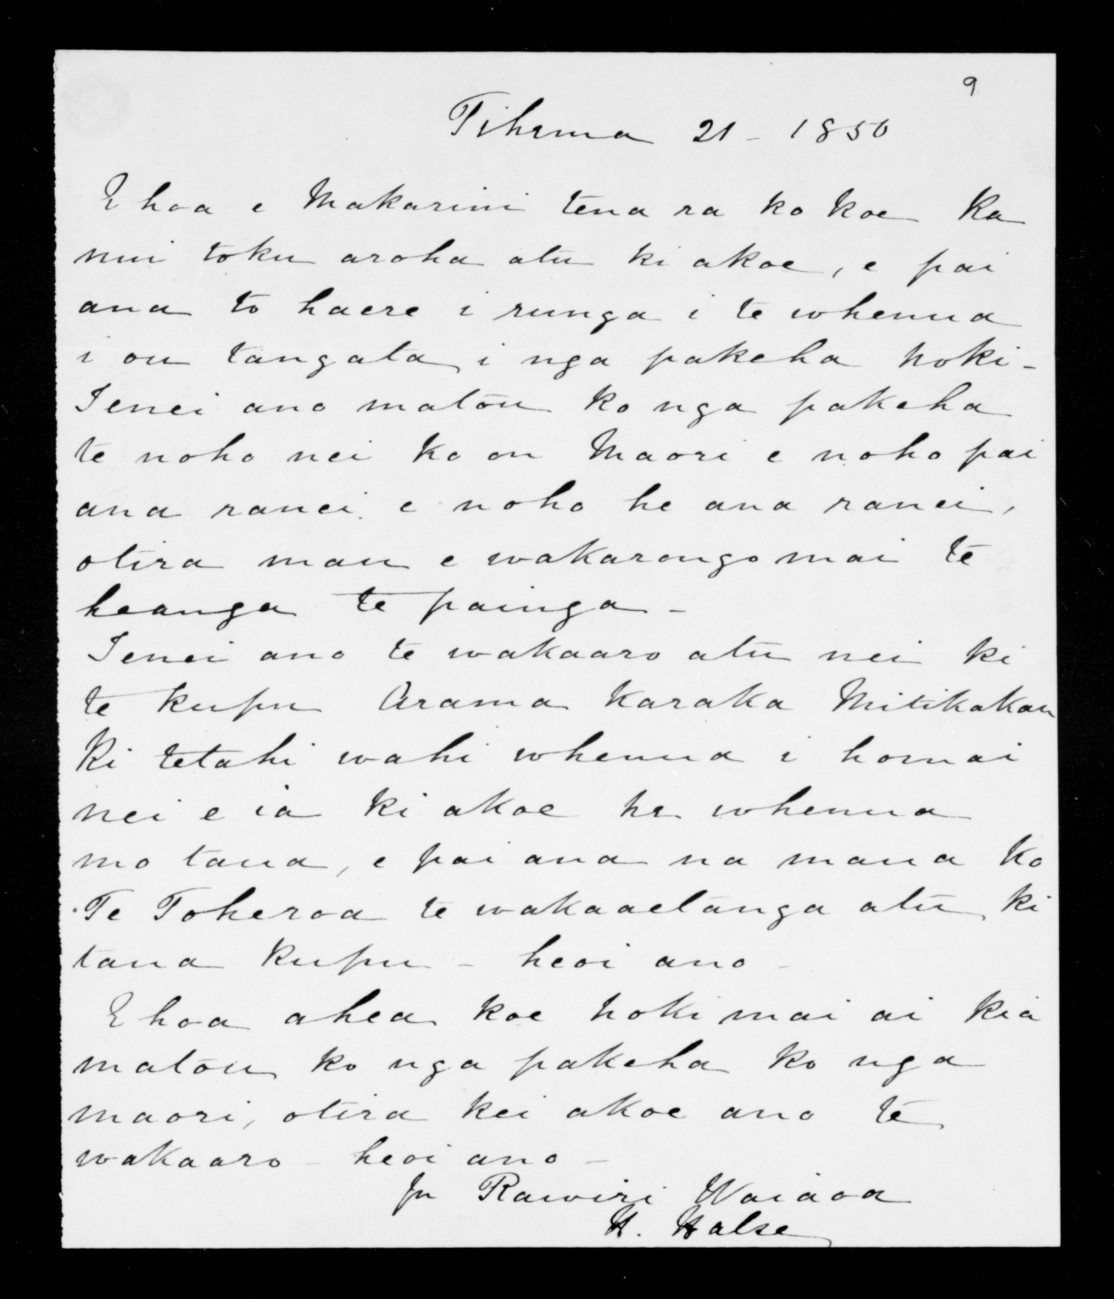 9
Tihema 21 - 1850
E hoa e Makarini tena ra ko koe Ka
nui toku aroha atu ki akoe, e pai
ana to haere i runga i te whenua
i ou tangata, i nga pakeha hoki -
Tenei ano matou ko nga pakeha
te noho nei ko ou Maori e noho pai
ana ranei e noho he ana ranei,
otira mau e wakarongo mai te
heanga te painga -
Tenei ano te wakaaro atu nei ki
te kupu Arama Karaka Mitikakau
Ki tetahi wahi whenua i homai
nei e ia ki akoe he whenua
mo taua, e pai ana na maua ko
Te Toheroa te wakaaetanga atu ki
tana kupu - heoi ano -
E hoa ahea koe hoki mai ai kia
matou ko nga pakeha ko nga
maori, otira kei akoe ano te
wakaaro - heoi ano -
Rawiri Waiaoa
H. Halse